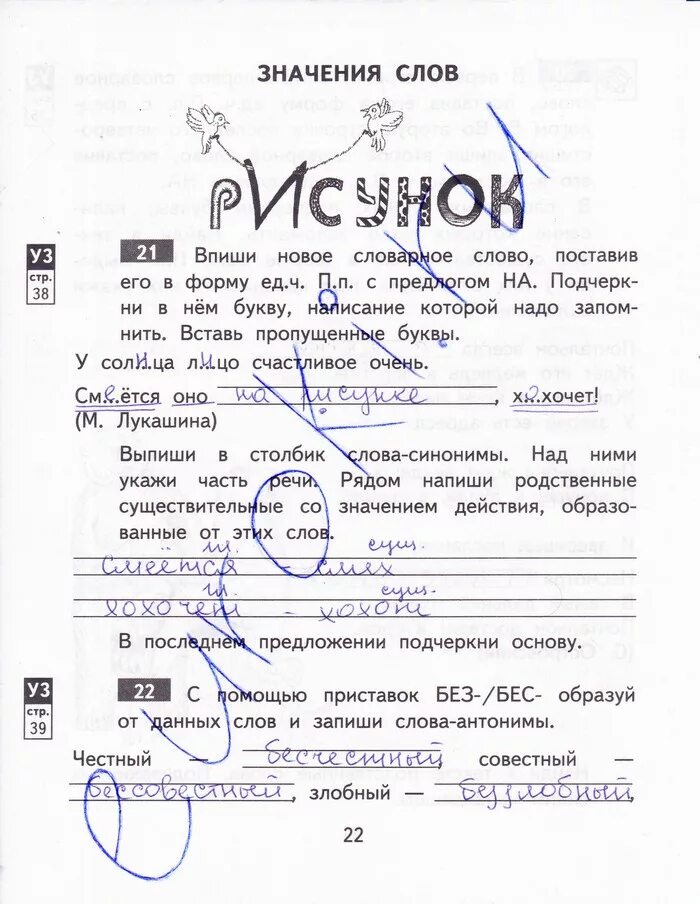 ЗНАЧЕНИЯ СЛОВ
РИСУНОК
УЗ
стр.
38
21 Впиши новое словарное слово, поставив
его в форму ед.ч. П.п. с предлогом НА. Подчерк-
ни в нём букву, написание которой надо запом-
нить. Вставь пропущенные буквы.
У солнца лицо счастливое очень.
Смеётся оно на рисунке, хохочет!
(М. Лукашина)
Выпиши в столбик слова-синонимы. Над ними
укажи часть речи. Рядом напиши родственные
существительные со значением действия, образо-
ванные от этих слов.
гл. сущ.
смеётся - смех
гл. сущ.
хохочет - хохот
В последнем предложении подчеркни основу.
УЗ
стр.
39
22 С помощью приставок БЕЗ-/БЕС- образуй
от данных слов и запиши слова-антонимы.
Честный — бесчестный, совестный —
бессовестный, злобный — беззлобный,
22